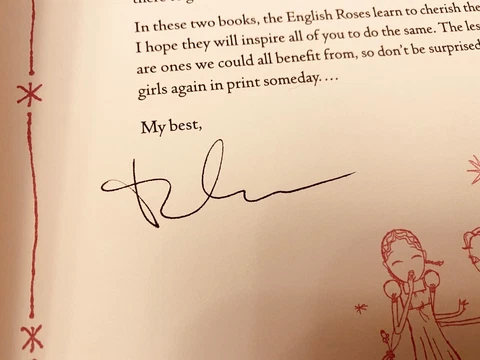 In these two books, the English Roses learn to cherish the
I hope they will inspire all of you to do the same. The les
are ones we could all benefit from, so don't be surprised
girls again in print someday....
My best,